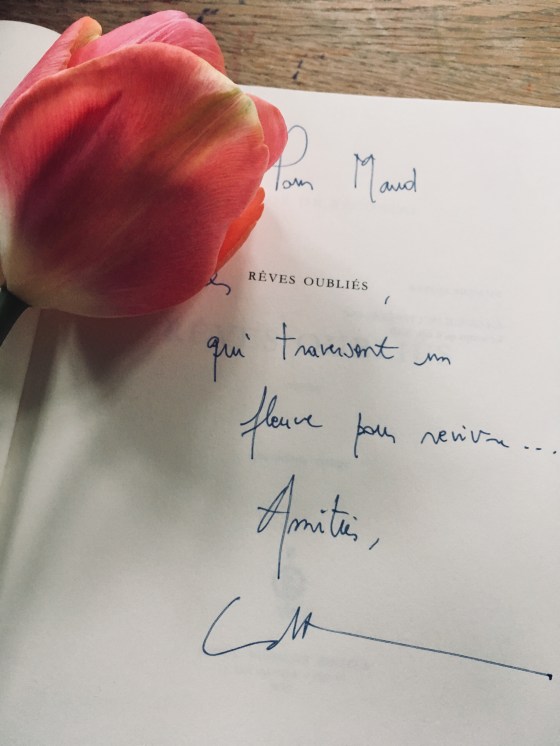 Pour Maud
les RÊVES OUBLIÉS,
qui traversent un
fleuve pour revivre...
Amitiés,